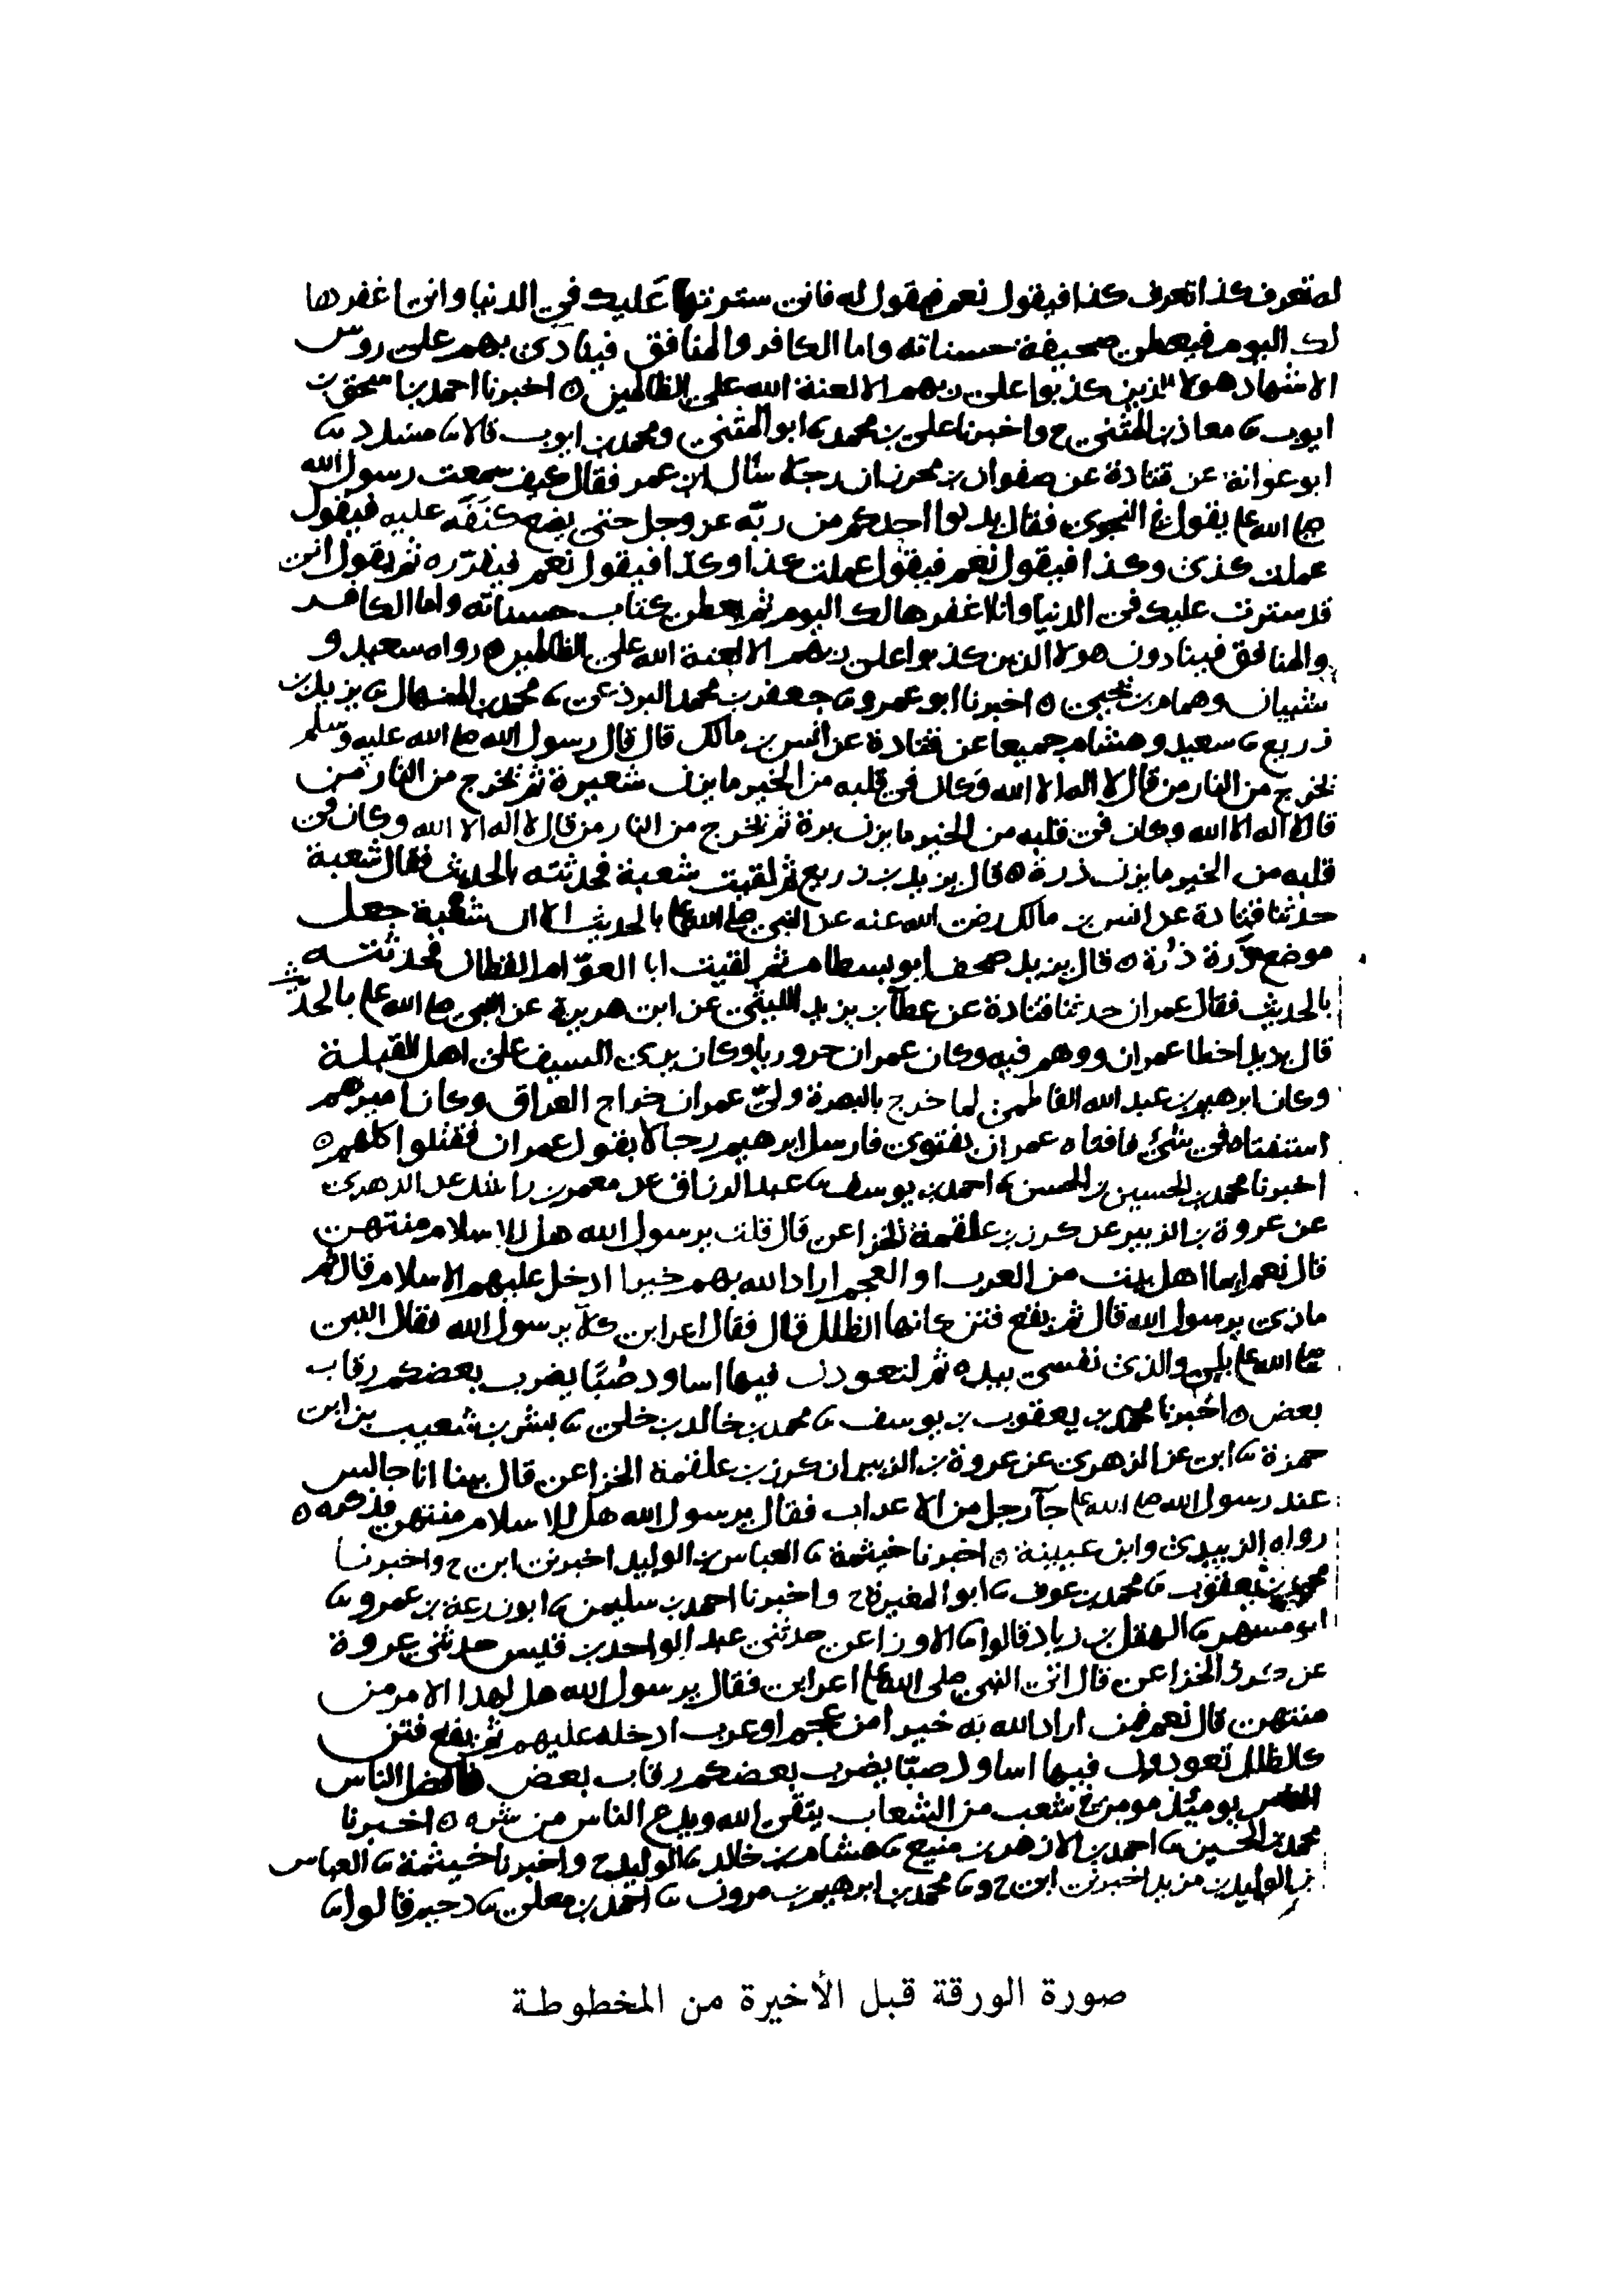 له تعرف كذا تعرف كذا فيقول نعم فيقول له فانى سترتها عليك في الدنيا وانى اغفرها
لك اليوم فيعطى صحيفة حسناته واما الكافر والمنافق فينادى بهم على روس
الاشهاد هولا الذين كذبوا على ربهم الا لعنة الله على الظالمين ٥ اخبرنا احمد بن اسحق بن
ايوب ثنا معاذ بن المثنى ح واخبرنا على بن محمد ثنا ابو المثنى ومحمد بن ايوب قالا ثنا مسدد ثنا
ابو عوانة عن قتادة عن صفوان بن محرز ان رجلا سال ابن عمر فقال كيف سمعت رسول الله
صلى الله عليه يقول في النجوى فقال يدنوا احدكم من ربّه عز وجل حتى يضع كنَفَه عليه فيقول
عملت كذى وكذا فيقول نعم فيقول عملت كذا وكذا فيقول نعم فيقرّره ثم يقول انى
قد سترت عليك في الدنيا وانا اغفرها لك اليوم ثم يعطى كتاب حسناته واما الكافر
والمنافق فينادون هولا الذين كذبوا على ربهم الا لعنة الله على الظالمين ٥ رواه سعيد و
شيبان وهمام بن يحيى ٥ اخبرنا ابو عمرو ثنا جعفر بن محمد البرذعى ثنا محمد بن المنهال ثنا يزيد بن
زريع ثنا سعيد وهشام جميعا عن قتادة عن انس بن مالك قال قال رسول الله صلى الله عليه وسلم
يخرج من النار من قال لا اله الا الله وكان في قلبه من الخير ما يزن شعيرة ثم يخرج من النار من
قال لا اله الا الله وكان في قلبه من الخير ما يزن برة ثم يخرج من النار من قال لا اله الا الله وكان في
قلبه من الخير ما يزن ذرة ٥ قال يزيد بن زريع ثم لقيت شعبة فحدثته بالحديث فقال شعبة
حدثنا قتادة عن انس بن مالك رضى الله عنه عن النبي صلى الله عليه بالحديث الا ان شعبة جعل
موضع ذرة ذُرة ٥ قال يزيد صحف ابو بسطام ثم لقيت ابا العوّام القطان فحدثته
بالحديث فقال عمران حدثنا قتادة عن عطآ بن يزيد الليثى عن ابى هريرة عن النبي صلى الله عليه بالحديث
قال يزيد اخطا عمران ووهم فيه وكان عمران حروريا وكان يرى السيف على اهل القبلة
وكان ابرهيم بن عبد الله الفاطمى لما خرج بالبصرة ولىّ عمران خراج العراق وكان اميرهم
استفتاه في شئ فافتاه عمران بفتوى فارسل ابرهيم رجالا بقول عمران فقتلوا كلهم ٥
اخبرنا محمد بن الحسين بن الحسن ثنا احمد بن يوسف ثنا عبد الرزاق عن معمر بن راشد عن الزهرى
عن عروة بن الزبير عن كرز بن علقمة الخزاعى قال قلت يرسول الله هل للاسلام منتهى
قال نعم ايما اهل بيت من العرب او العجم اراد الله بهم خيرا ادخل عليهم الاسلام قال ثم
ماذى يرسول الله قال ثم يقع فتن كانها الظلل قال فقال اعرابى كلّا يرسول الله فقال النبي
صلى الله عليه بلى والذى نفسى بيده ثم لتعودن فيها اساود صُبًّا يضرب بعضكم رقاب
بعض ٥ اخبرنا محمد بن يعقوب بن يوسف ثنا محمد بن خالد بن خلى ثنا بشر بن شعيب بن ابى
حمزة ثنا ابى عن الزهرى عن عروة بن الزبير ان كرز بن علقمة الخزاعى قال بينا انا جالس
عند رسول الله صلى الله عليه جآ رجل من الاعراب فقال يرسول الله هل للاسلام منتهى فذكره ٥
رواه الزبيدى وابن عيينة ٥ اخبرنا خيثمة ثنا العباس بن الوليد اخبرنى ابى ح واخبرنا
محمد بن يعقوب ثنا محمد بن عوف ثنا ابو المغيرة ح واخبرنا احمد بن سليمن ثنا ابو زرعة بن عمرو ثنا
ابو مسهر ثنا الهقل بن زياد قالوا ثنا الاوزاعى حدثنى عبد الواحد بن قيس حدثنى عروة
عن كرز الخزاعى قال اتى النبي صلى الله عليه اعرابى فقال يرسول الله هل لهذا الامر من
منتهى قال نعم فمن اراد الله به خيرا من عجم او عرب ادخله عليهم ثم يقع فتن
كالظلل تعودون فيها اساود صبّا يضرب بعضكم رقاب بعض فافضل الناس
يومئذ مومن في شعب من الشعاب يتقى الله ويدع الناس من شره ٥ اخبرنا
محمد بن الحسين ثنا احمد بن الازهر بن منيع ثنا هشام بن خالد ثنا الوليد ح واخبرنا خيثمة ثنا العباس
بن الوليد بن مزيد اخبرنى ابى ح وثنا محمد بن ابرهيم بن مرون ثنا احمد بن معلى ثنا دحيم قالوا ثنا
صورة الورقة قبل الأخيرة من المخطوطة